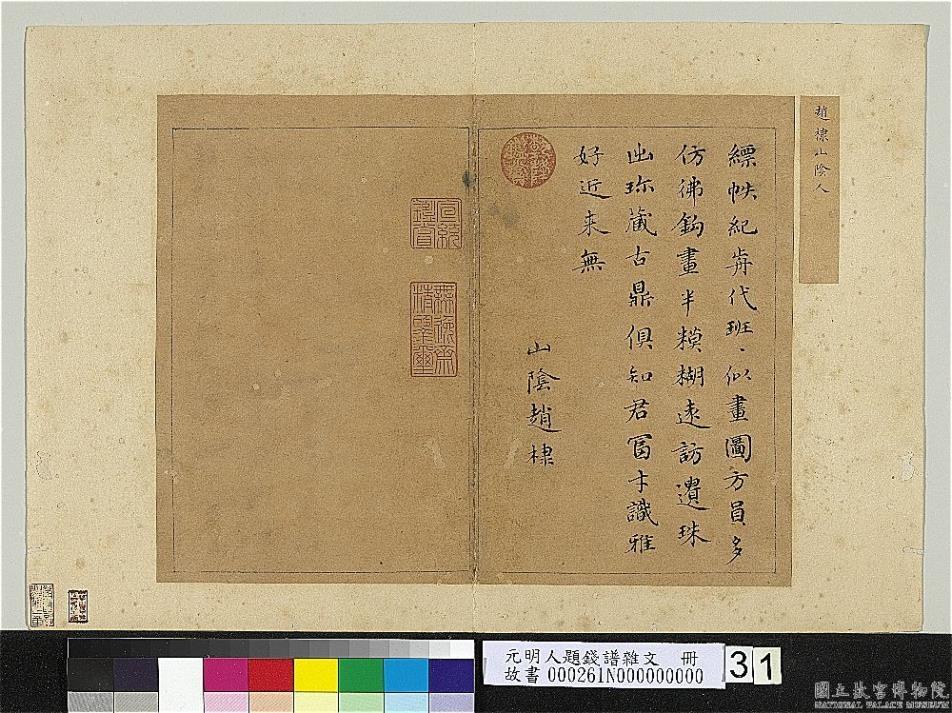 趙棣山陰人
縹帙紀歬代班〻似畫圖方員多
仿彿鈎畫半糢糊遠訪遺珠
出珎藏古鼎俱知君富才識雅
好近来無
山陰趙棣
宣統
鑑賞
無逸齋
精鑒璽
元明人題錢譜雜文 冊
故書 000261N000000000
31
國立故宮博物院
NATIONAL PALACE MUSEUM